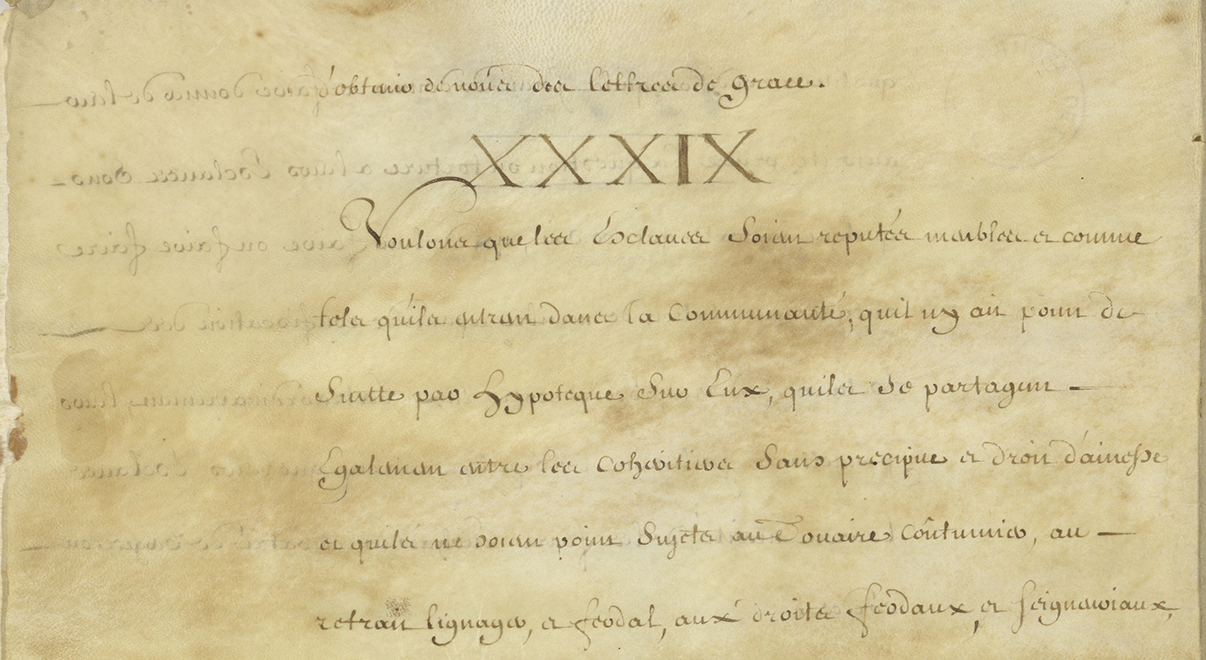 d'obtenir de nous des lettres de grace.
XXXIX
Voulons que les Esclaves soient reputés meubles et comme
tels qu'ils entrent dans la Communauté, quil ny ait point de
Suitte par Hypoteque sur Eux, quils se partagent
Egalement entre les coheritiers sans precipue et droit d'ainesse
et quils ne soient point sujets au Doüaire Coûtumier, au
retrait lignager, et feodal, aux droits feodaux, et seigneuriaux,